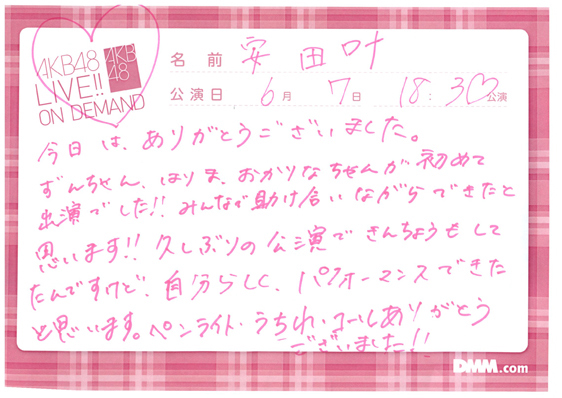 AKB48
LIVE!!
ON DEMAND
AKB
48
名前 安田叶
公演日 6月 7日 18:30公演
今日は、ありがとうございました。
ずんちゃん、はりま、おかりなちゃんが初めて
出演でした!! みんなで助け合いながらできたと
思います!! 久しぶりの公演できんちょうもして
たんですけど、自分らしく、パフォーマンスできた
と思います。ペンライト・うちわ・コールありがとう
ございました!!
DMM.com